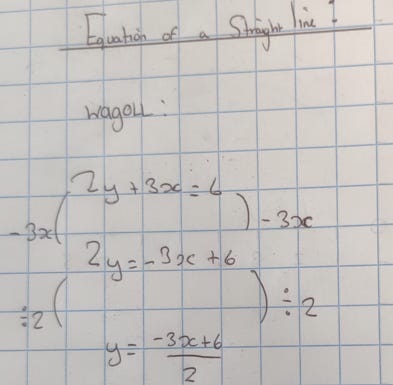 Equation of a Straight line:
wagoll:
2y + 3x = 6
-3x ( ) - 3x
2y = -3x + 6
÷2 ( ) ÷ 2
y = -3x+6
2